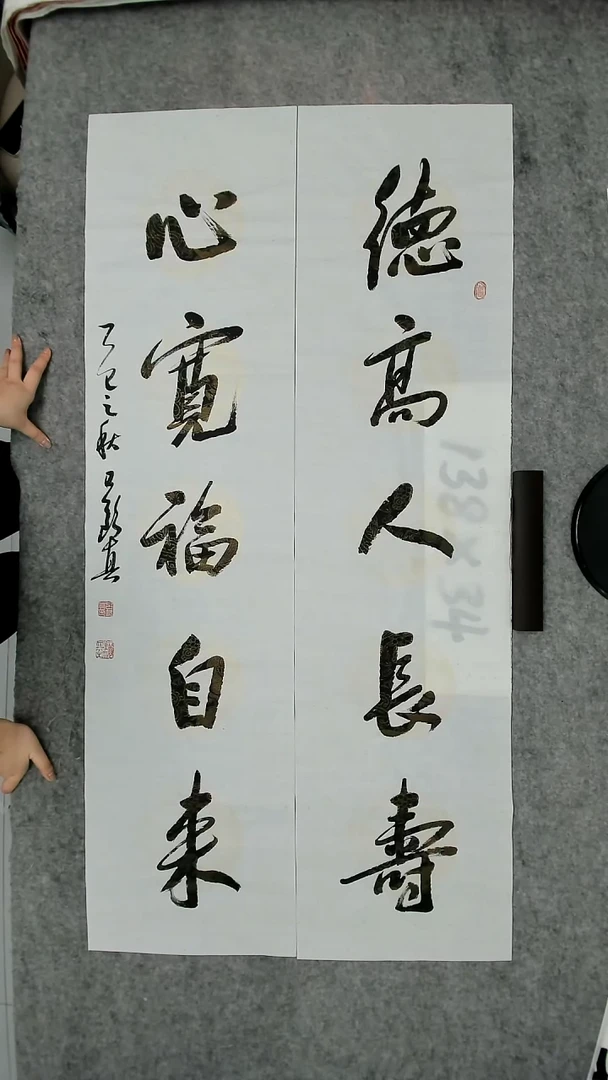 德高人長壽
心寬福自来
乙巳之秋
138×34